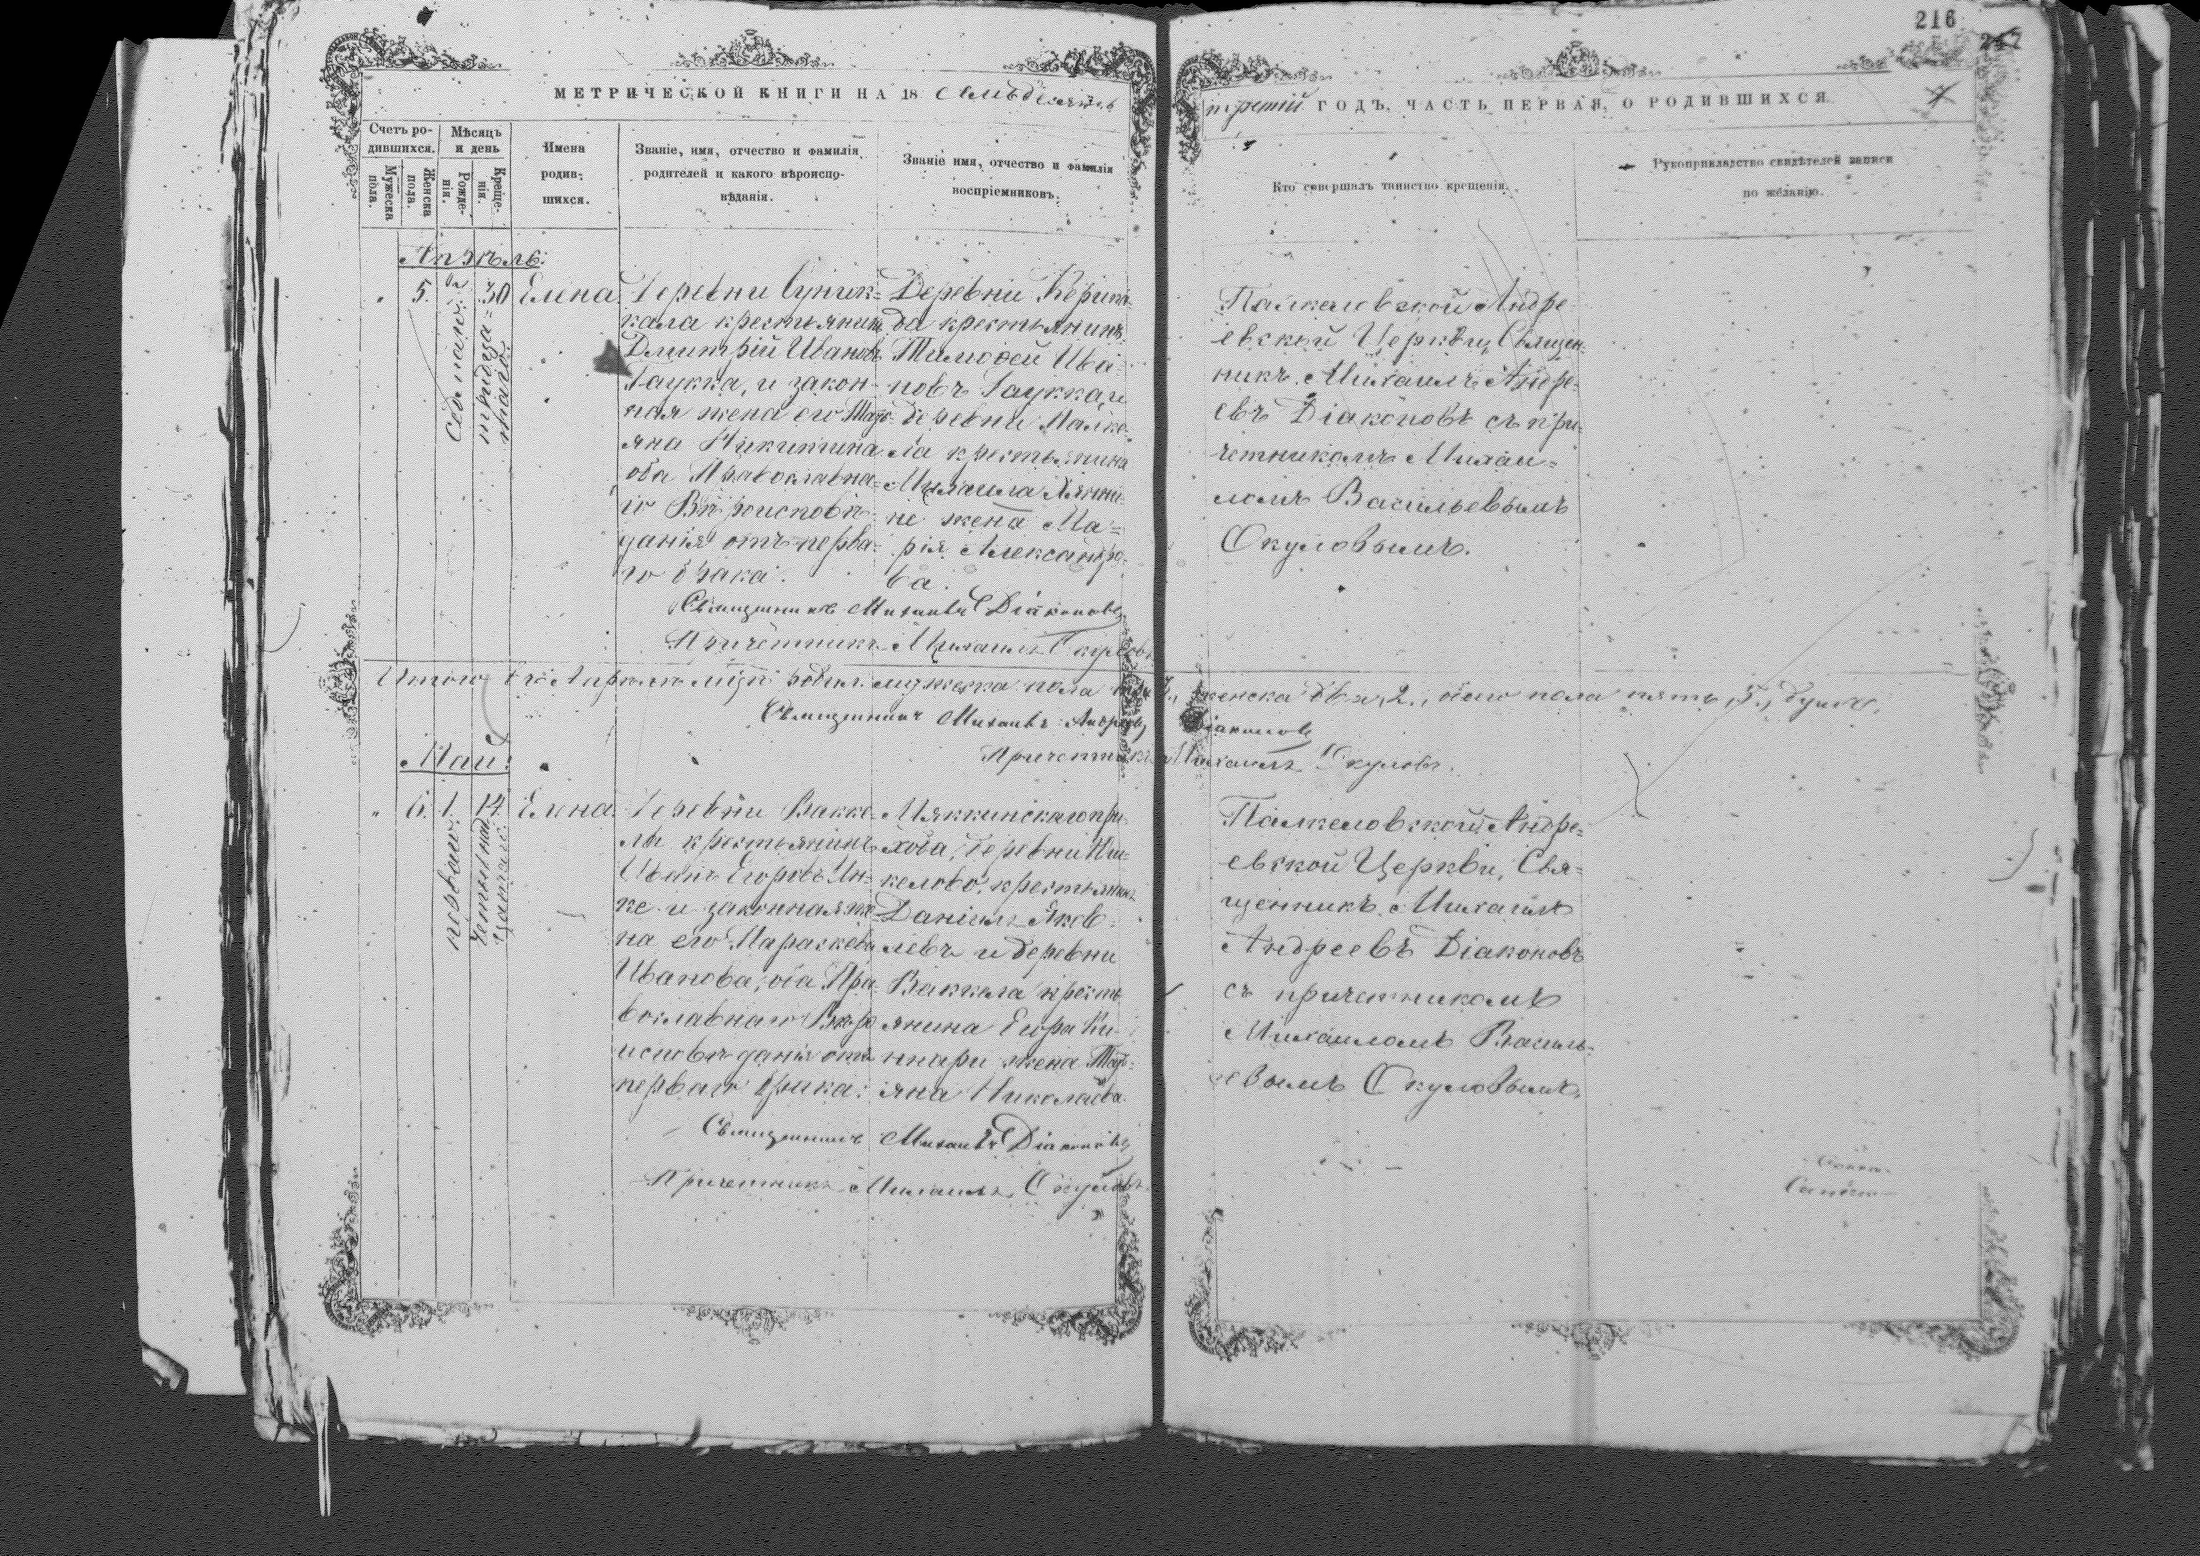 216
МЕТРИЧЕСКОЙ КНИГИ НА 18 семьдесятъ
третій ГОДЪ, ЧАСТЬ ПЕРВАЯ, О РОДИВШИХСЯ
Счетъ ро-
дившихся.
Мужеска
пола.
Женска
пола.
Мѣсяцъ
и день
Рожде-
нія.
Креще-
нія.
Имена
родив-
шихся.
Званіе, имя, отчество и фамилія
родителей и какого вѣроиспо-
вѣданія.
Званіе имя, отчество и фамилія
воспріемниковъ.
Кто совершалъ таинство крещенія.
Рукоприкладство свидѣтелей записи
по желанію.
Апрѣль:
5.
30
тридца=
таго
Елена
Деревни
кала крестьянинъ
Дмитрій Ивановъ
Гаукка, и закон-
ная жена его Тать
яна Никитина
оба Православна=
го Вѣроисповѣ-
данія отъ перва-
го брака.
Деревни
да крестьянинъ
Тимоѳей Ива
новъ Гаукка, и
деревни
ла крестьянина
Михаила
не жена Ма=
рія Александро-
ва.
Палкеловской Андре
евской Церкви, Священ-
никъ Михаилъ Андре-
евъ Діаконовъ съ при-
четникомъ Михаи=
ломъ Васильевымъ
Окуловымъ.
Священникъ Михаилъ Діаконовъ
Причетникъ Михаилъ Окуловъ
Итого въ Апрѣлѣ родил. мужеска пола три 3., женска два, 2., обого пола пять, 5., душъ.
Священникъ Михаилъ Андреевъ Діаконовъ
Причетникъ Михаилъ Окуловъ.
Май:
6.
1.
перваго
14
четырнад
цатаго
Елена.
Деревни Вакке-
лы крестьянинъ
Иванъ Егоровъ
ке и законная же-
на его Параскева
Иванова, оба Пра-
вославнаго Вѣро
исповѣданія отъ
перваго брака:
Мяккинскаго при-
хода, деревни
келово, крестьянинъ
Даніилъ Яков-
левъ и деревни
Ваккела кресть
янина Егора
жена Тать-
яна Николаева.
Палкеловской Андре=
евской Церкви, Свя=
щенникъ Михаилъ
Андреевъ Діаконовъ
съ причетникомъ
Михаиломъ Василь-
евымъ Окуловымъ.
Священникъ Михаилъ Діаконовъ
Причетникъ Михаилъ Окуловъ.